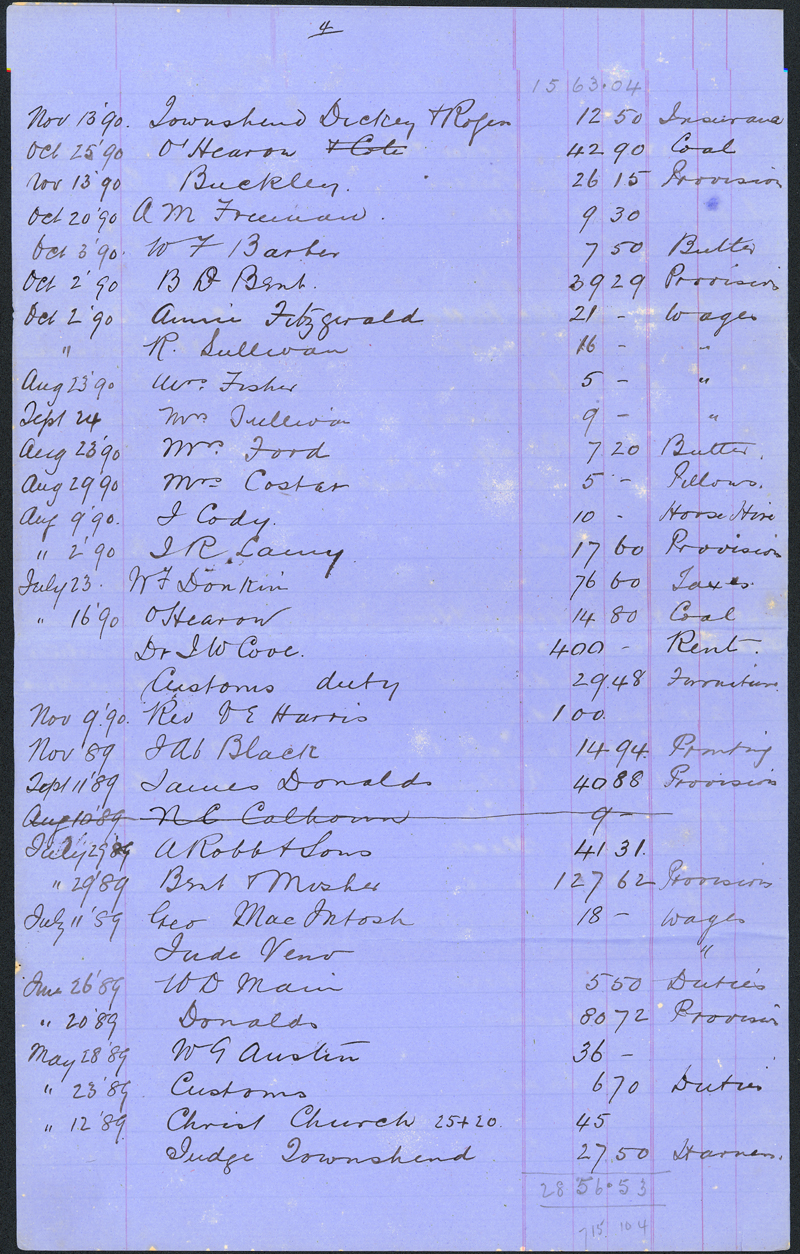 4
1563.04
Nov 13'90. Townshend Dickey & Rogers 12 50 Insurance
Oct 25'90 O'Hearon & Cote 42 90 Coal
Nov 13'90 Buckley. 26 15 Provision
Oct 20'90 A M Freeman. 9 30
Oct 3'90. W F Barber 7 50 Butter
Oct 2'90 B D Bent. 39 29 Provisions
Oct 2'90 Annie Fitzgerald 21 - Wages
" R. Sullivan 16 - "
Aug 23'90 Mrs Fisher 5 - "
Sept 24 Mrs Sullivan 9 - "
Aug 23'90 Mrs Ford 7 20 Butter.
Aug 29 90 Mrs Costar 5 - Pillows.
Aug 9'90. J Cody. 10 - Horse Hire
" 2'90 J R. Lamy 17 60 Provisions
July 23. W F Donkin 76 60 Taxes.
" 16'90 O'Hearon 14 80 Coal
Dr J W Cove. 400 - Rent.
Customs duty 29.48 Furniture
Nov 9'90. Rev V E Harris 100.
Nov '89 J Ab Black 14 94. Printing
Sept 11'89 James Donalds 40 88 Provisions
Aug 10'89 N C Calhoun 9 -
July 29'89 A Robb & Sons 41 31.
" 29'89 Bent & Mosher 127 62 Provisions
July 11'89 Geo MacIntosh 18 - Wages
Jude Veno "
June 26'89 W D Main 5 50 Duties
" 20'89 Donalds 80 72 Provision
May 28'89 W G Austin 36 -
" 23'89 Customs 6 70 Duties
" 12'89. Christ Church 25+20. 45
Judge Townshend 27.50 Harness.
2856.53
715 104